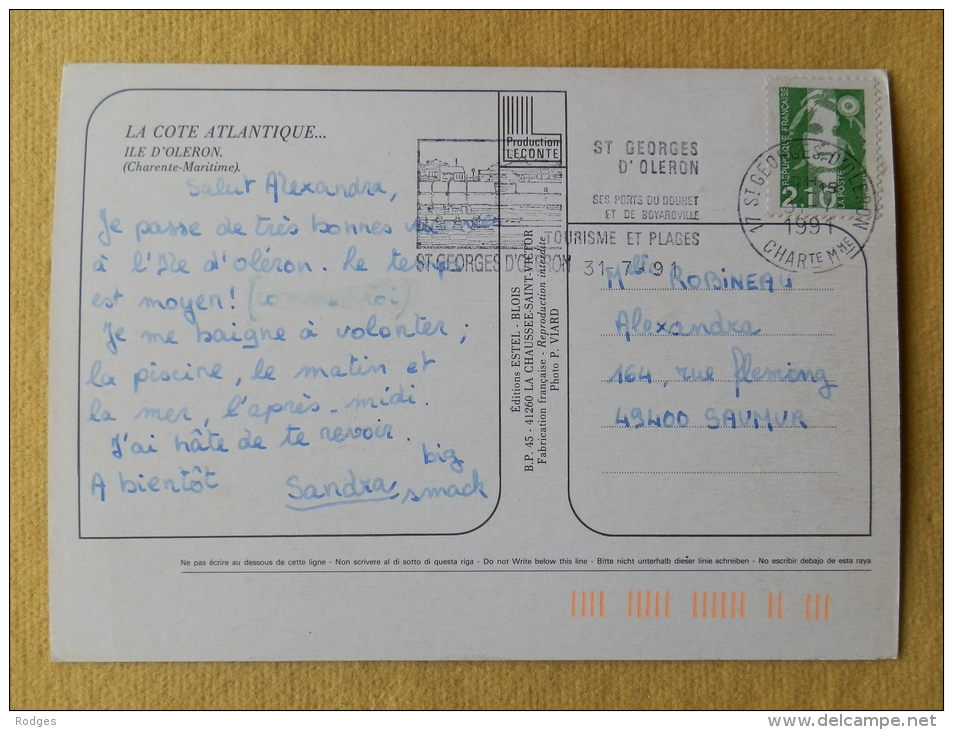 LA COTE ATLANTIQUE...
ILE D'OLERON.
(Charente-Maritime).
Salut Alexandra,
Je passe de très bonnes
à l'Ile d'oléron. Le temps
est moyen! (comme toi)
Je me baigne à volonter ;
la piscine, le matin et
la mer, l'après-midi.
J'ai hâte de te revoir.
A bientôt
Sandra
big
smack
Production
LECONTE
Éditions ESTEL - BLOIS
B.P. 45 - 41260 LA CHAUSSEE-SAINT-VICTOR
Fabrication française - Reproduction interdite
Photo P. VIARD
ST GEORGES
D'OLERON
SES PORTS DU DOUHET
ET DE BOYARDVILLE
TOURISME ET PLAGES
ST GEORGES D'OLERON 31-7-91
REPUBLIQUE FRANÇAISE
LA POSTE
2,10
17 ST GEORGES-D'OLERON
1991
CHARTE MME
Mlle ROBINEAU
Alexandra
164, rue fleming
49400 SAUMUR
Ne pas écrire au dessous de cette ligne - Non scrivere al di sotto di questa riga - Do not Write below this line - Bitte nicht unterhalb dieser linie schreiben - No escribir debajo de esta raya
Rodges
http://www.delcampe.net